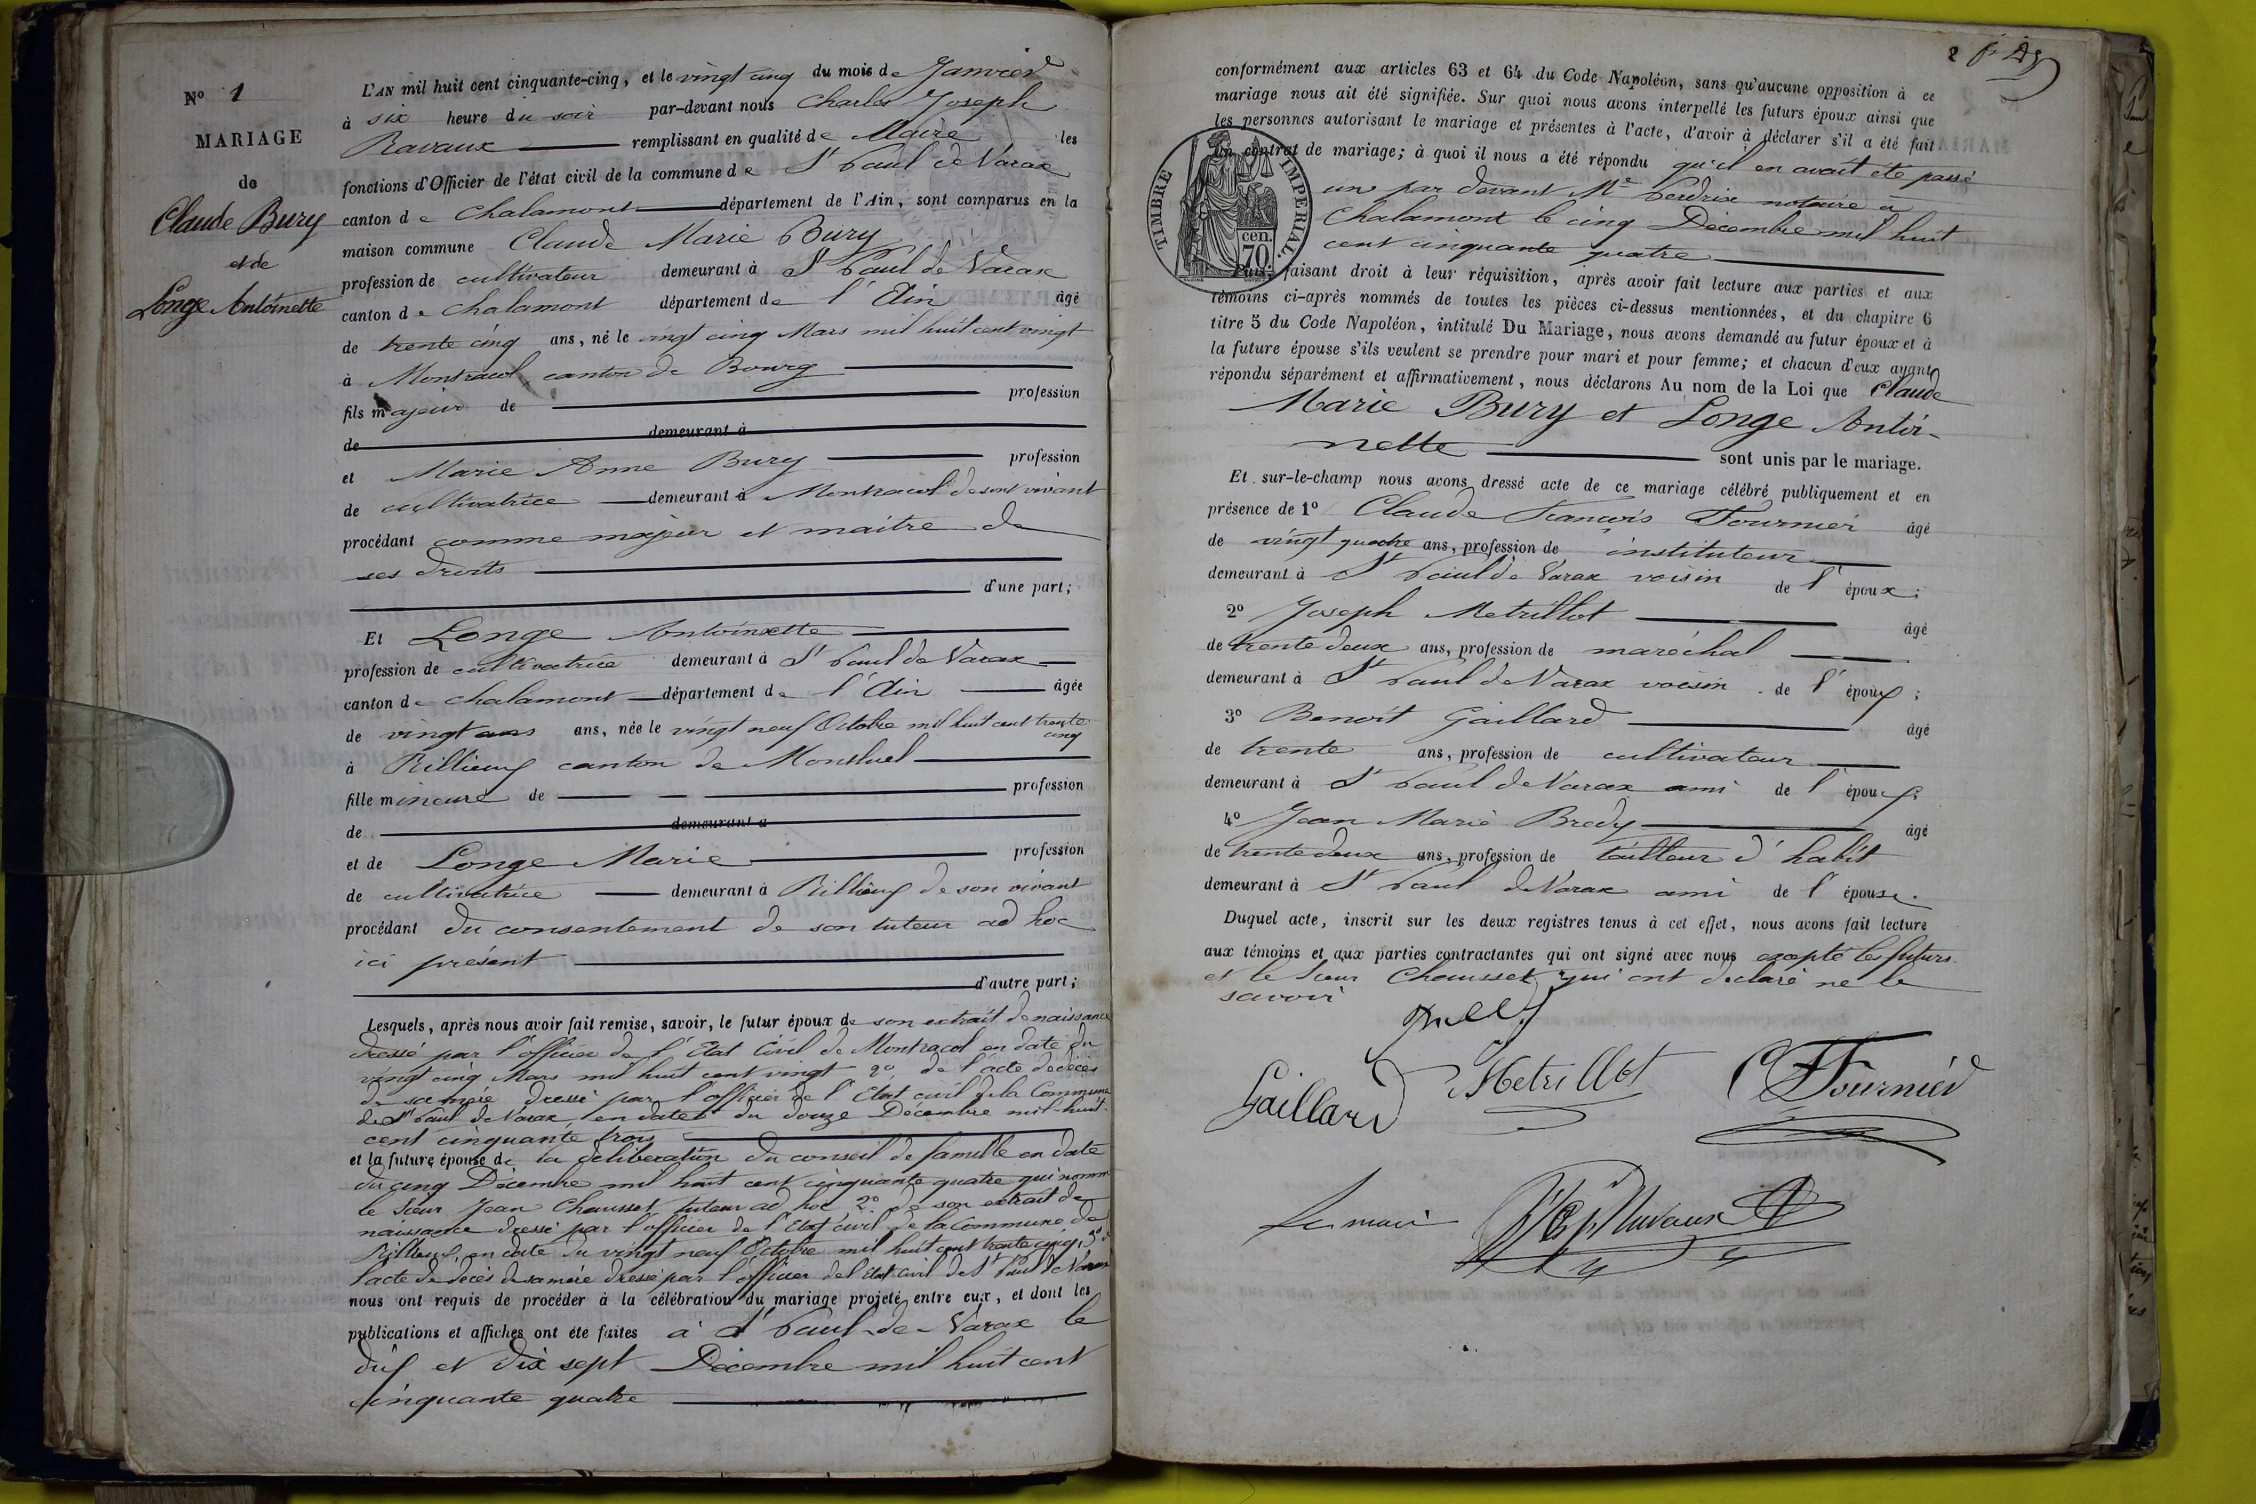 Nº 1
MARIAGE
de
Claude Bury
et de
Longe Antoinette
L'AN mil huit cent cinquante-cinq, et le vingt cinq du mois de Janvier
à six heure du soir par-devant nous Charles Joseph
Ravaux remplissant en qualité de Maire les
fonctions d'Officier de l'état civil de la commune de St Paul de Varax
canton de Chalamont département de l'Ain, sont comparus en la
maison commune Claude Marie Bury
profession de cultivateur demeurant à St Paul de Varax
canton de Chalamont département de l'Ain âgé
de trente cinq ans, né le vingt cinq Mars mil huit cent vingt
à Montracol canton de Bourg
fils majeur de profession
de demeurant à
et Marie Anne Bury profession
de cultivatrice demeurant à Montracol de sont vivant
procédant comme majeur et maitre de
ses droits
d'une part;
Et Longe Antoinette
profession de cultivatrice demeurant à St Paul de Varax
canton de Chalamont département de l'Ain âgée
de vingt ans ans, née le vingt neuf Octobre mil huit cent trente
cinq
à Rillieux canton de Montluel
fille mineure de profession
de demeurant à
et de Longe Marie profession
de cultivatrice demeurant à Rillieux de son vivant
procédant du consentement de son tuteur ad hoc
ici présent
d'autre part;
Lesquels, après nous avoir fait remise, savoir, le futur époux de son extrait de naissance
dressé par l'officier de l'Etat Civil de Montracol en date du
vingt cinq Mars mil huit cent vingt 2º de l'acte de décès
de sa mère dressé par l'officier de l'Etat civil de la Commune
de St Paul de Varax en date du douze Décembre mil huit
cent cinquante trois
et la future épouse de la délibération du conseil de famille en date
du cinq Décembre mil huit cent cinquante quatre qui nomme
le Sieur Jean Chausset tuteur ad hoc 2º de son extrait de
naissance dressé par l'officier de l'Etat civil de la Commune de
Rillieux en date du vingt neuf Octobre mil huit cent trente cinq, 3º
l'acte de décès de sa mère dressé par l'officier de l'Etat Civil de St Paul de Varax
nous ont requis de procéder à la célébration du mariage projeté entre eux, et dont les
publications et affiches ont été faites à St Paul de Varax le
dix et dix sept Décembre mil huit cent
cinquante quatre
conformément aux articles 63 et 64 du Code Napoléon, sans qu'aucune opposition à ce
mariage nous ait été signifiée. Sur quoi nous avons interpellé les futurs époux ainsi que
les personnes autorisant le mariage et présentes à l'acte, d'avoir à déclarer s'il a été fait
un contrat de mariage; à quoi il nous a été répondu qu'il en avait été passé
un par devant Me Perdrix notaire à
Chalamont le cinq Décembre mil huit
cent cinquante quatre
TIMBRE IMPERIAL.
cen.
70
Puis, faisant droit à leur réquisition, après avoir fait lecture aux parties et aux
témoins ci-après nommés de toutes les pièces ci-dessus mentionnées, et du chapitre 6
titre 5 du Code Napoléon, intitulé Du Mariage, nous avons demandé au futur époux et à
la future épouse s'ils veulent se prendre pour mari et pour femme; et chacun d'eux ayant
répondu séparément et affirmativement, nous déclarons Au nom de la Loi que Claude
Marie Bury et Longe Antoi-
nette
sont unis par le mariage.
Et sur-le-champ nous avons dressé acte de ce mariage célébré publiquement et en
présence de 1º Claude François Fournier âgé
de vingt quatre ans, profession de instituteur
demeurant à St Paul de Varax voisin de l'époux;
2º Joseph Metrillot âgé
de trente deux ans, profession de maréchal
demeurant à St Paul de Varax voisin de l'époux;
3º Benoit Gaillard âgé
de trente ans, profession de cultivateur
demeurant à St Paul de Varax ami de l'époux;
4º Jean Marie Bredy âgé
de trente deux ans, profession de tailleur d'habit
demeurant à St Paul de Varax ami de l'épouse.
Duquel acte, inscrit sur les deux registres tenus à cet effet, nous avons fait lecture
aux témoins et aux parties contractantes qui ont signé avec nous excepté les futurs
et le Sieur Chausset qui ont déclaré ne le
savoir
Gaillard Metrillot CF Fournier
Le maire